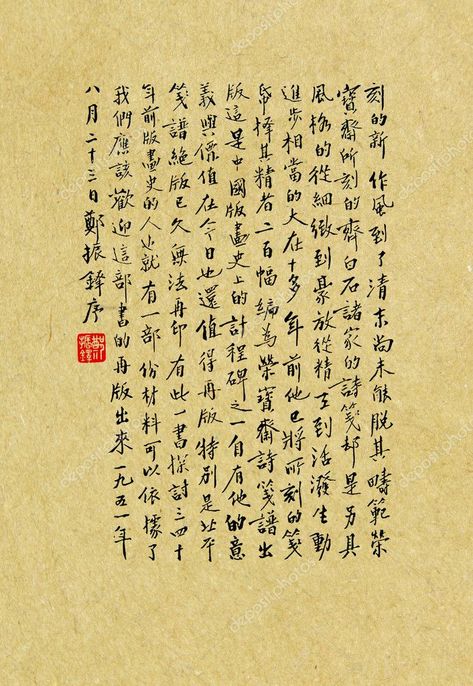 刻的新作風到了清末尚未能脫其疇範榮
寶齋所刻的齊白石諸家的詩箋却是另具
風格的從細緻到豪放從精工到活潑生動
進步相當的大在十多年前他已將所刻的箋
帋擇其精者二百幅編為榮寶齋詩箋譜出
版這是中國版畫史上的計程碑之一自有他的意
義與價值在今日也還值得再版特別是北平
箋譜絕版已久無法再印有此一書探討三四十
年前版畫史的人也就有一部份材料可以依據了
我們應該歡迎這部書的再版出來一九五一年
八月二十三日鄭振鐸序
depositphotos